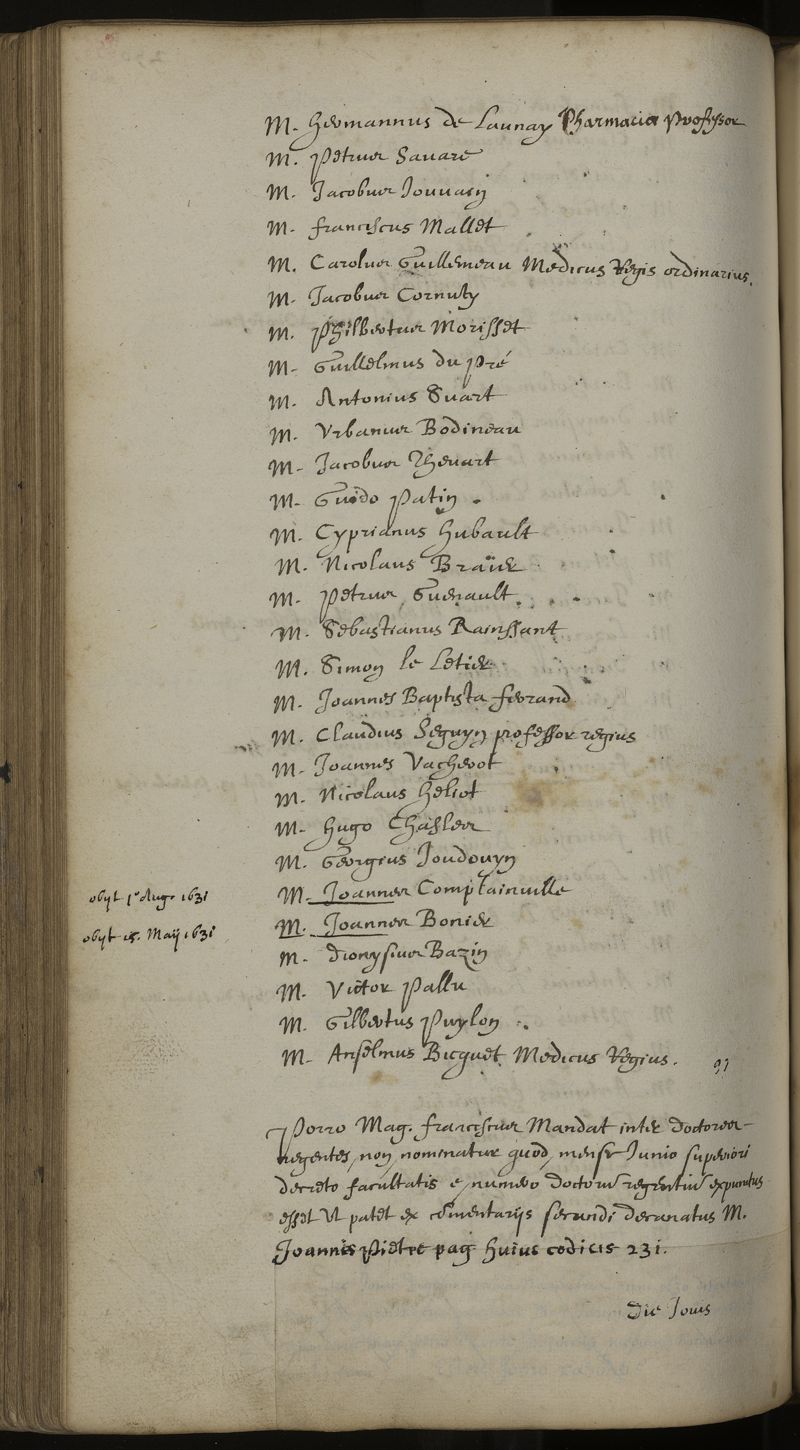 M. Hermannus de Launay Pharmaciæ Professor
M. Petrus Savare
M. Jacobus Jouvain
M. Franciscus Mallet
M. Carolus Guillemeau Medicus Regis ordinarius.
M. Jacobus Cornuty
M. Philbertus Morisset
M. Guillelmus du Pré
M. Antonius Suart
M. Vrbanus Bodineau
M. Jacobus Thevart
M. Guido Patin
M. Cyprianus Hubault
M. Nicolaus Braÿer
M. Petrus Guenault
M. Sebastianus Rainssant
M. Simon le Letier
M. Joannes Baptista ferrand
M. Claudius Seguyn professor regius
M. Joannes Vacherot
M. Nicolaus Heliot
M. Hugo Chasles
M. Georgius Joudouyn
obijt 1ª Aug. 1631 M. Joannes Complainville
obijt 15. Maij 1631 M. Joannes Borier
M. Dionysius Bazin
M. Victor Pallu
M. Gilbertus Puylon
M. Anselmus Bicquet Medicus Regius. 91
Porro Mag. franciscus Mandat inter Doctores
regentes, non nominatur quod, mense Junio superiori
decreto facultatis e, numero doctorũ regentiũ expunctus
esset Vt patet ex cõmentarijs secundi decanatus M.
Joannis Pietre pag huius codicis 231.
Die Jovis